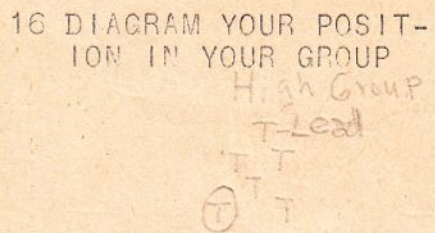 16 DIAGRAM YOUR POSIT-
ION IN YOUR GROUP
High Group
T-Lead
T T
T
T T